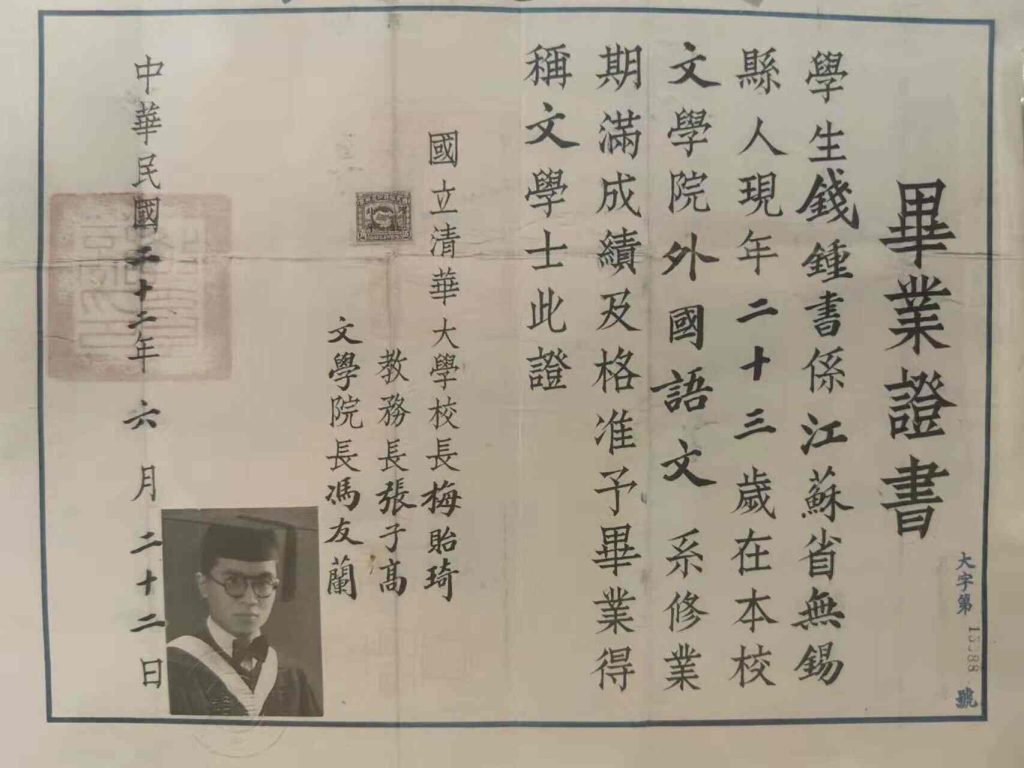 畢業證書
大字第 號
學生錢鍾書係江蘇省無錫
縣人現年二十三歲在本校
文學院外國語文系修業
期滿成績及格准予畢業得
稱文學士此證
國立清華大學校長梅貽琦
教務長張子高
文學院長馮友蘭
中華民國二十二年六月二十二日